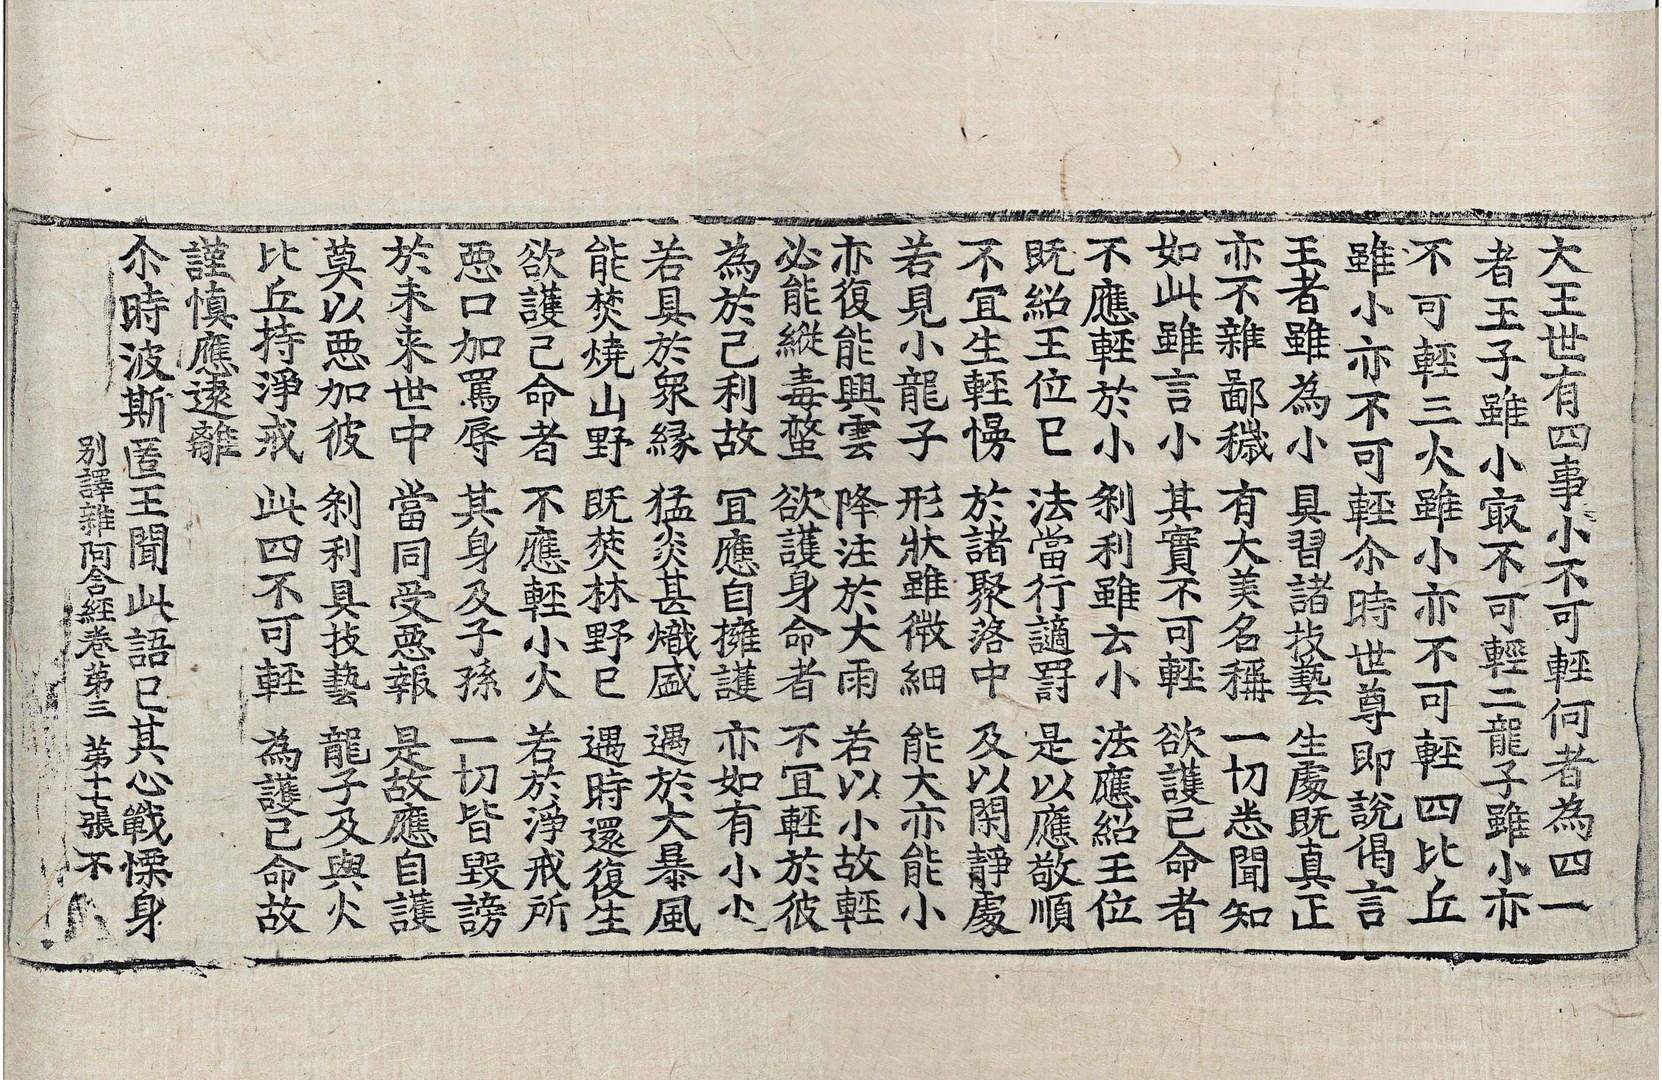 大王世有四事小不可輕何者為四一
者王子雖小㝡不可輕二龍子雖小亦
不可輕三火雖小亦不可輕四比丘
雖小亦不可輕尒時世尊即說偈言
王者雖為小 具習諸技藝 生處既真正
亦不雜鄙穢 有大美名稱 一切悉聞知
如此雖言小 其實不可輕 欲護己命者
不應輕於小 剎利雖云小 法應紹王位
既紹王位已 法當行讁罸 是以應敬順
不宜生輕慢 於諸聚落中 及以閑靜處
若見小龍子 形狀雖微細 能大亦能小
亦復能興雲 降注於大雨 若以小故輕
必能縱毒螫 欲護身命者 不宜輕於彼
為於己利故 宜應自擁護 亦如有小火
若具於衆緣 猛炎甚熾盛 遇於大暴風
能焚燒山野 既焚林野已 遇時還復生
欲護己命者 不應輕小火 若於淨戒所
惡口加罵辱 其身及子孫 一切皆毀謗
於未来世中 當同受惡報 是故應自護
莫以惡加彼 剎利具技藝 龍子及與火
比丘持淨戒 此四不可輕 為護己命故
謹慎應遠離
尒時波斯匿王聞此語已其心戰慄身
別譯雜阿含經卷第三 第十七張 不